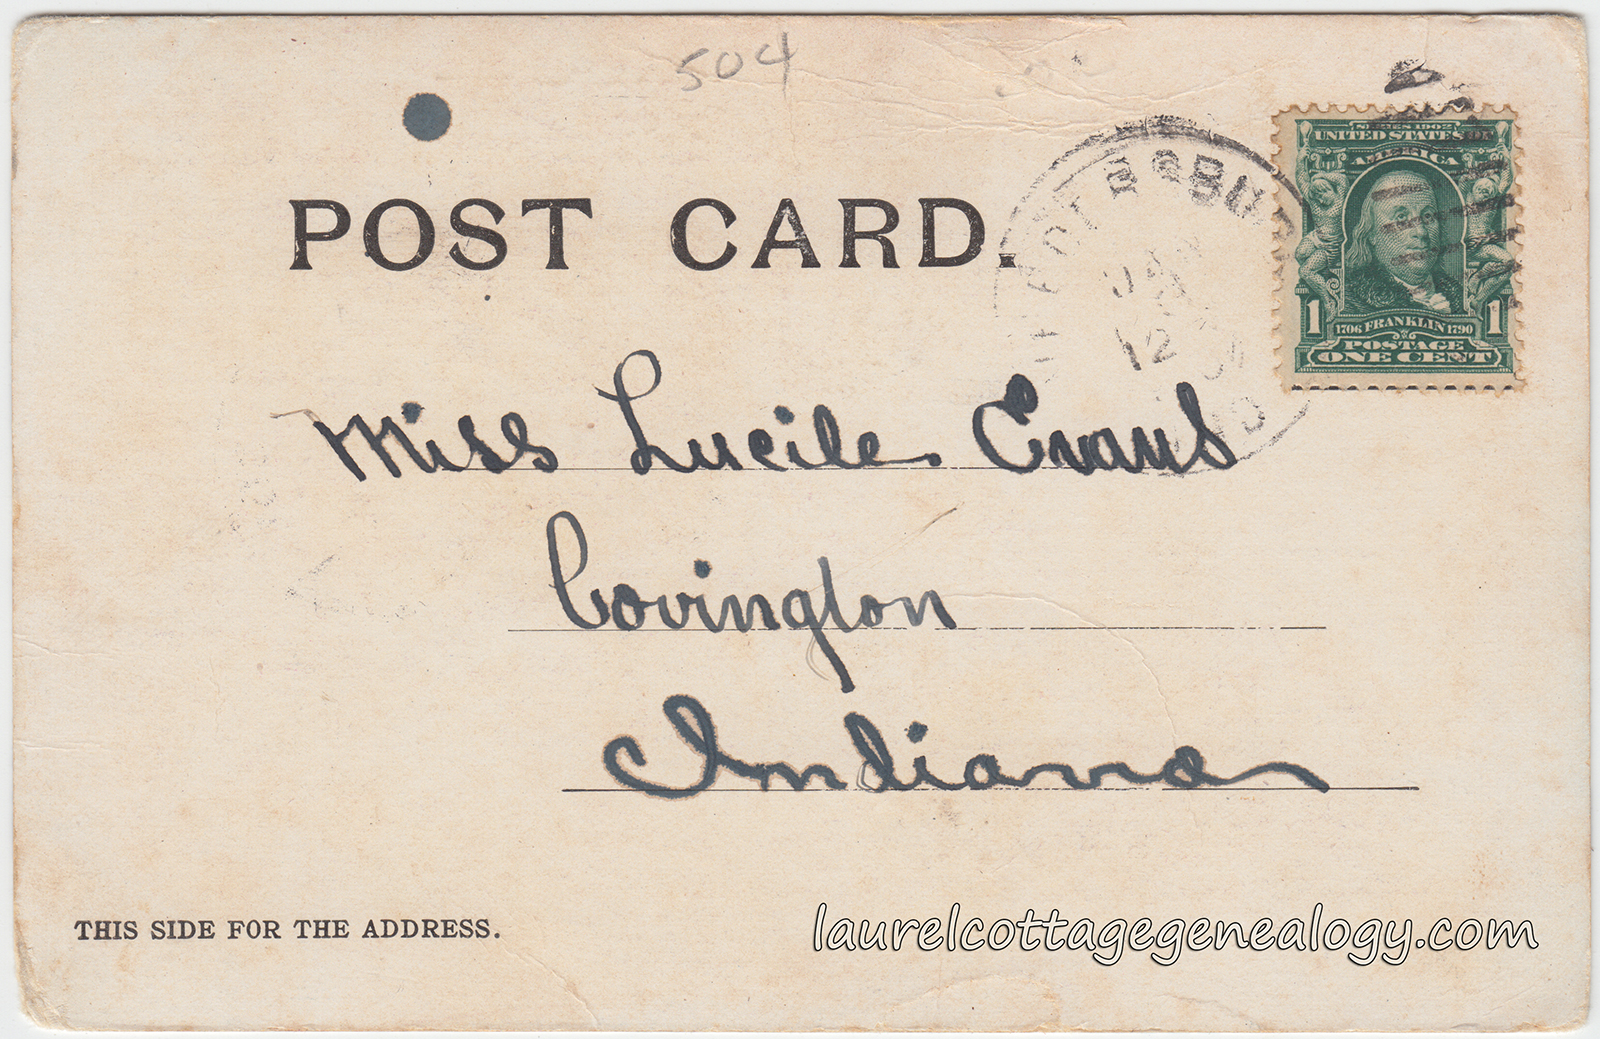 504
POST CARD.
JAN
12
SERIES 1902
UNITED STATES OF
AMERICA
1 1706 FRANKLIN 1790 1
POSTAGE
ONE CENT
Miss Lucile Evans
Covington
Indiana
THIS SIDE FOR THE ADDRESS.
laurelcottagegenealogy.com